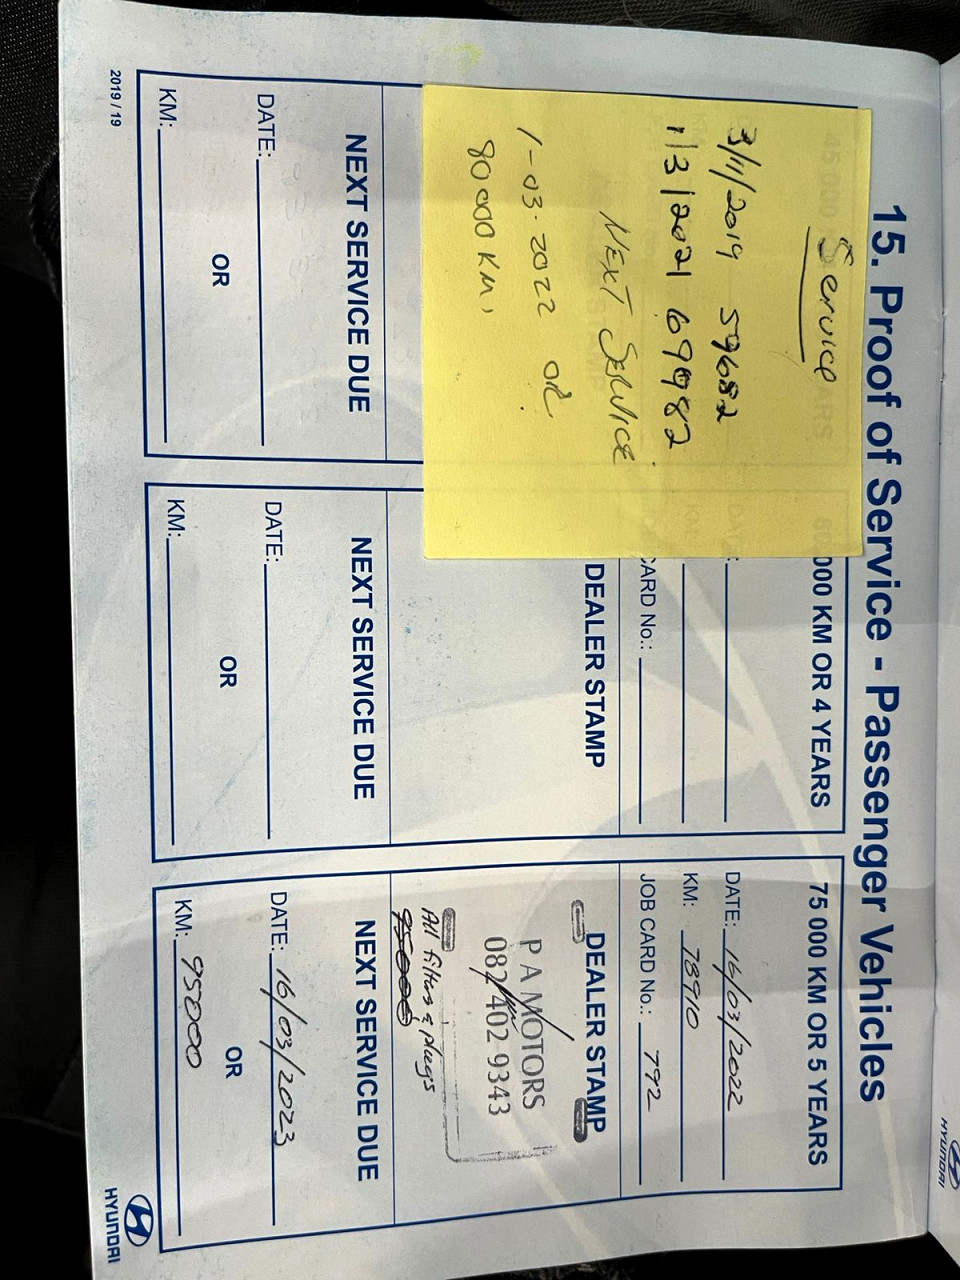 15. Proof of Service - Passenger Vehicles
Service
3/11/2019 59682
1/3/2021 69982
NEXT SERVICE
1-03-2022 OR
80000 KM,
NEXT SERVICE DUE
DATE:
OR
KM:
2019 / 19
000 KM OR 4 YEARS
DATE:
KM:
CARD No.:
DEALER STAMP
NEXT SERVICE DUE
DATE:
OR
KM:
75 000 KM OR 5 YEARS
DATE: 16/03/2022
KM: 78910
JOB CARD No.: 792
DEALER STAMP
P A MOTORS
082 402 9343
All filters & plugs
95000
NEXT SERVICE DUE
DATE: 16/03/2023
OR
KM: 95000
HYUNDAI
HYUNDAI